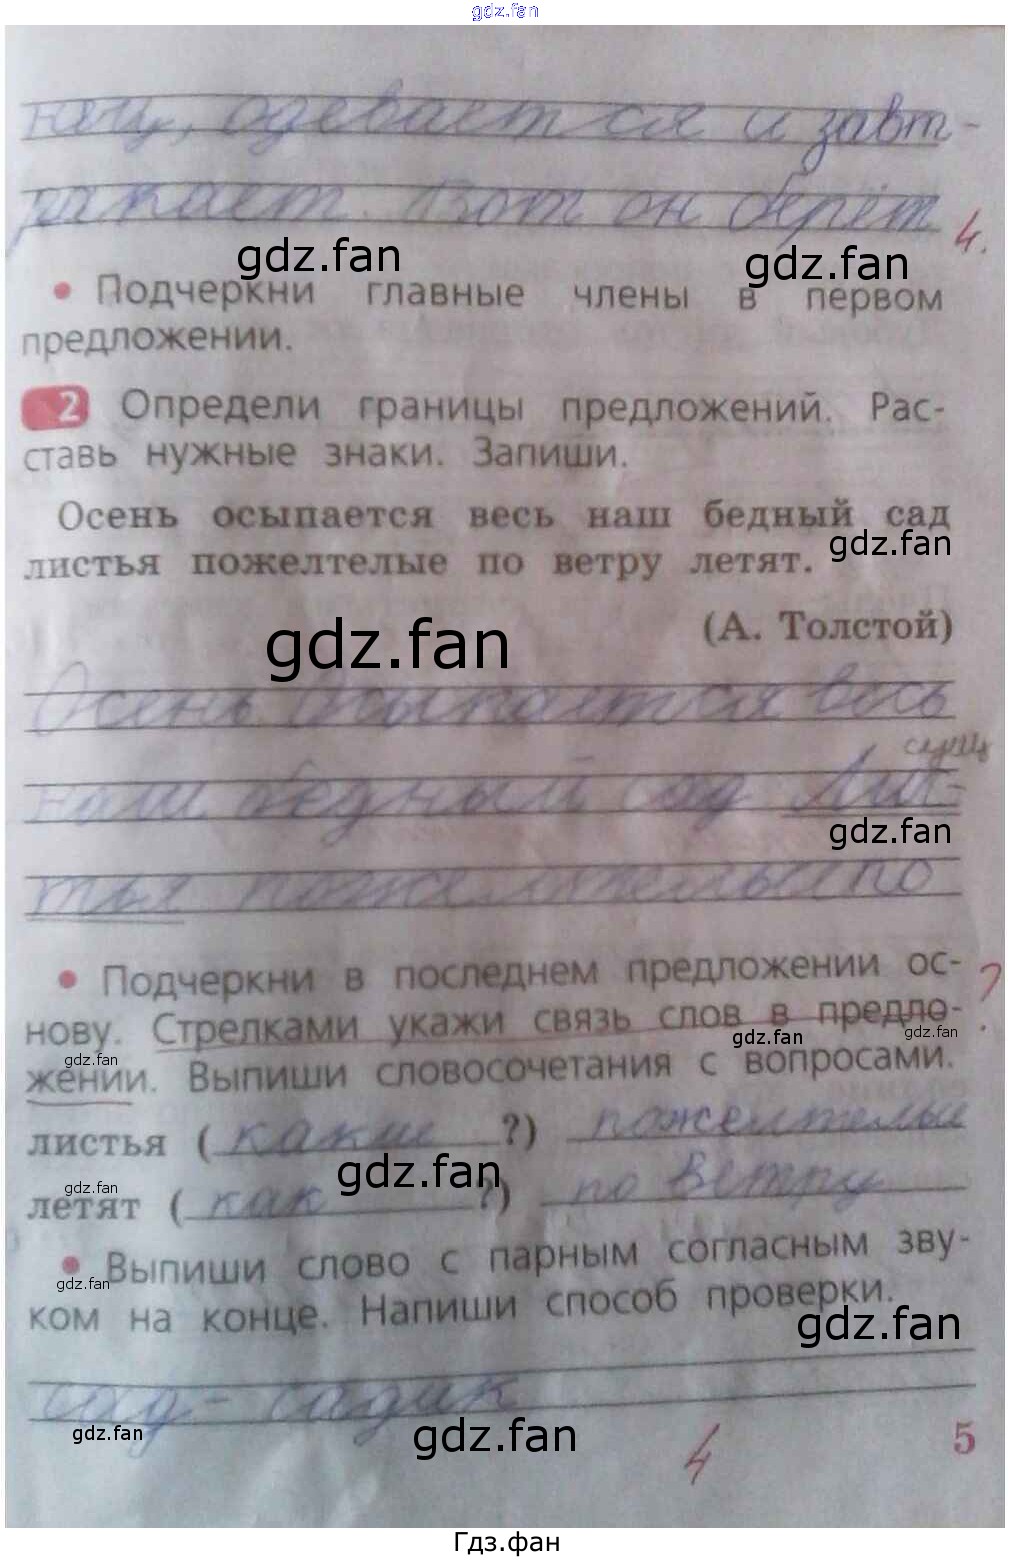 gdz.fan
нац, одевается и завт-
ракает. Вот он берёт
4.
gdz.fan
gdz.fan
• Подчеркни главные члены в первом
предложении.
2 Определи границы предложений. Рас-
ставь нужные знаки. Запиши.
Осень осыпается весь наш бедный сад
gdz.fan
листья пожелтелые по ветру летят.
(А. Толстой)
gdz.fan
Осень. Осыпается весь
сущ
наш бедный сад Лис-
gdz.fan
тья пожелтелые по
• Подчеркни в последнем предложении ос-
?
нову. Стрелками укажи связь слов в предло-
gdz.fan
gdz.fan
gdz.fan
жении. Выпиши словосочетания с вопросами.
листья (какие ?) пожелтелые
gdz.fan
gdz.fan
летят (как ?) по ветру
• Выпиши слово с парным согласным зву-
gdz.fan
ком на конце. Напиши способ проверки.
gdz.fan
сад - садик
gdz.fan
gdz.fan
4
5
Гдз.фан